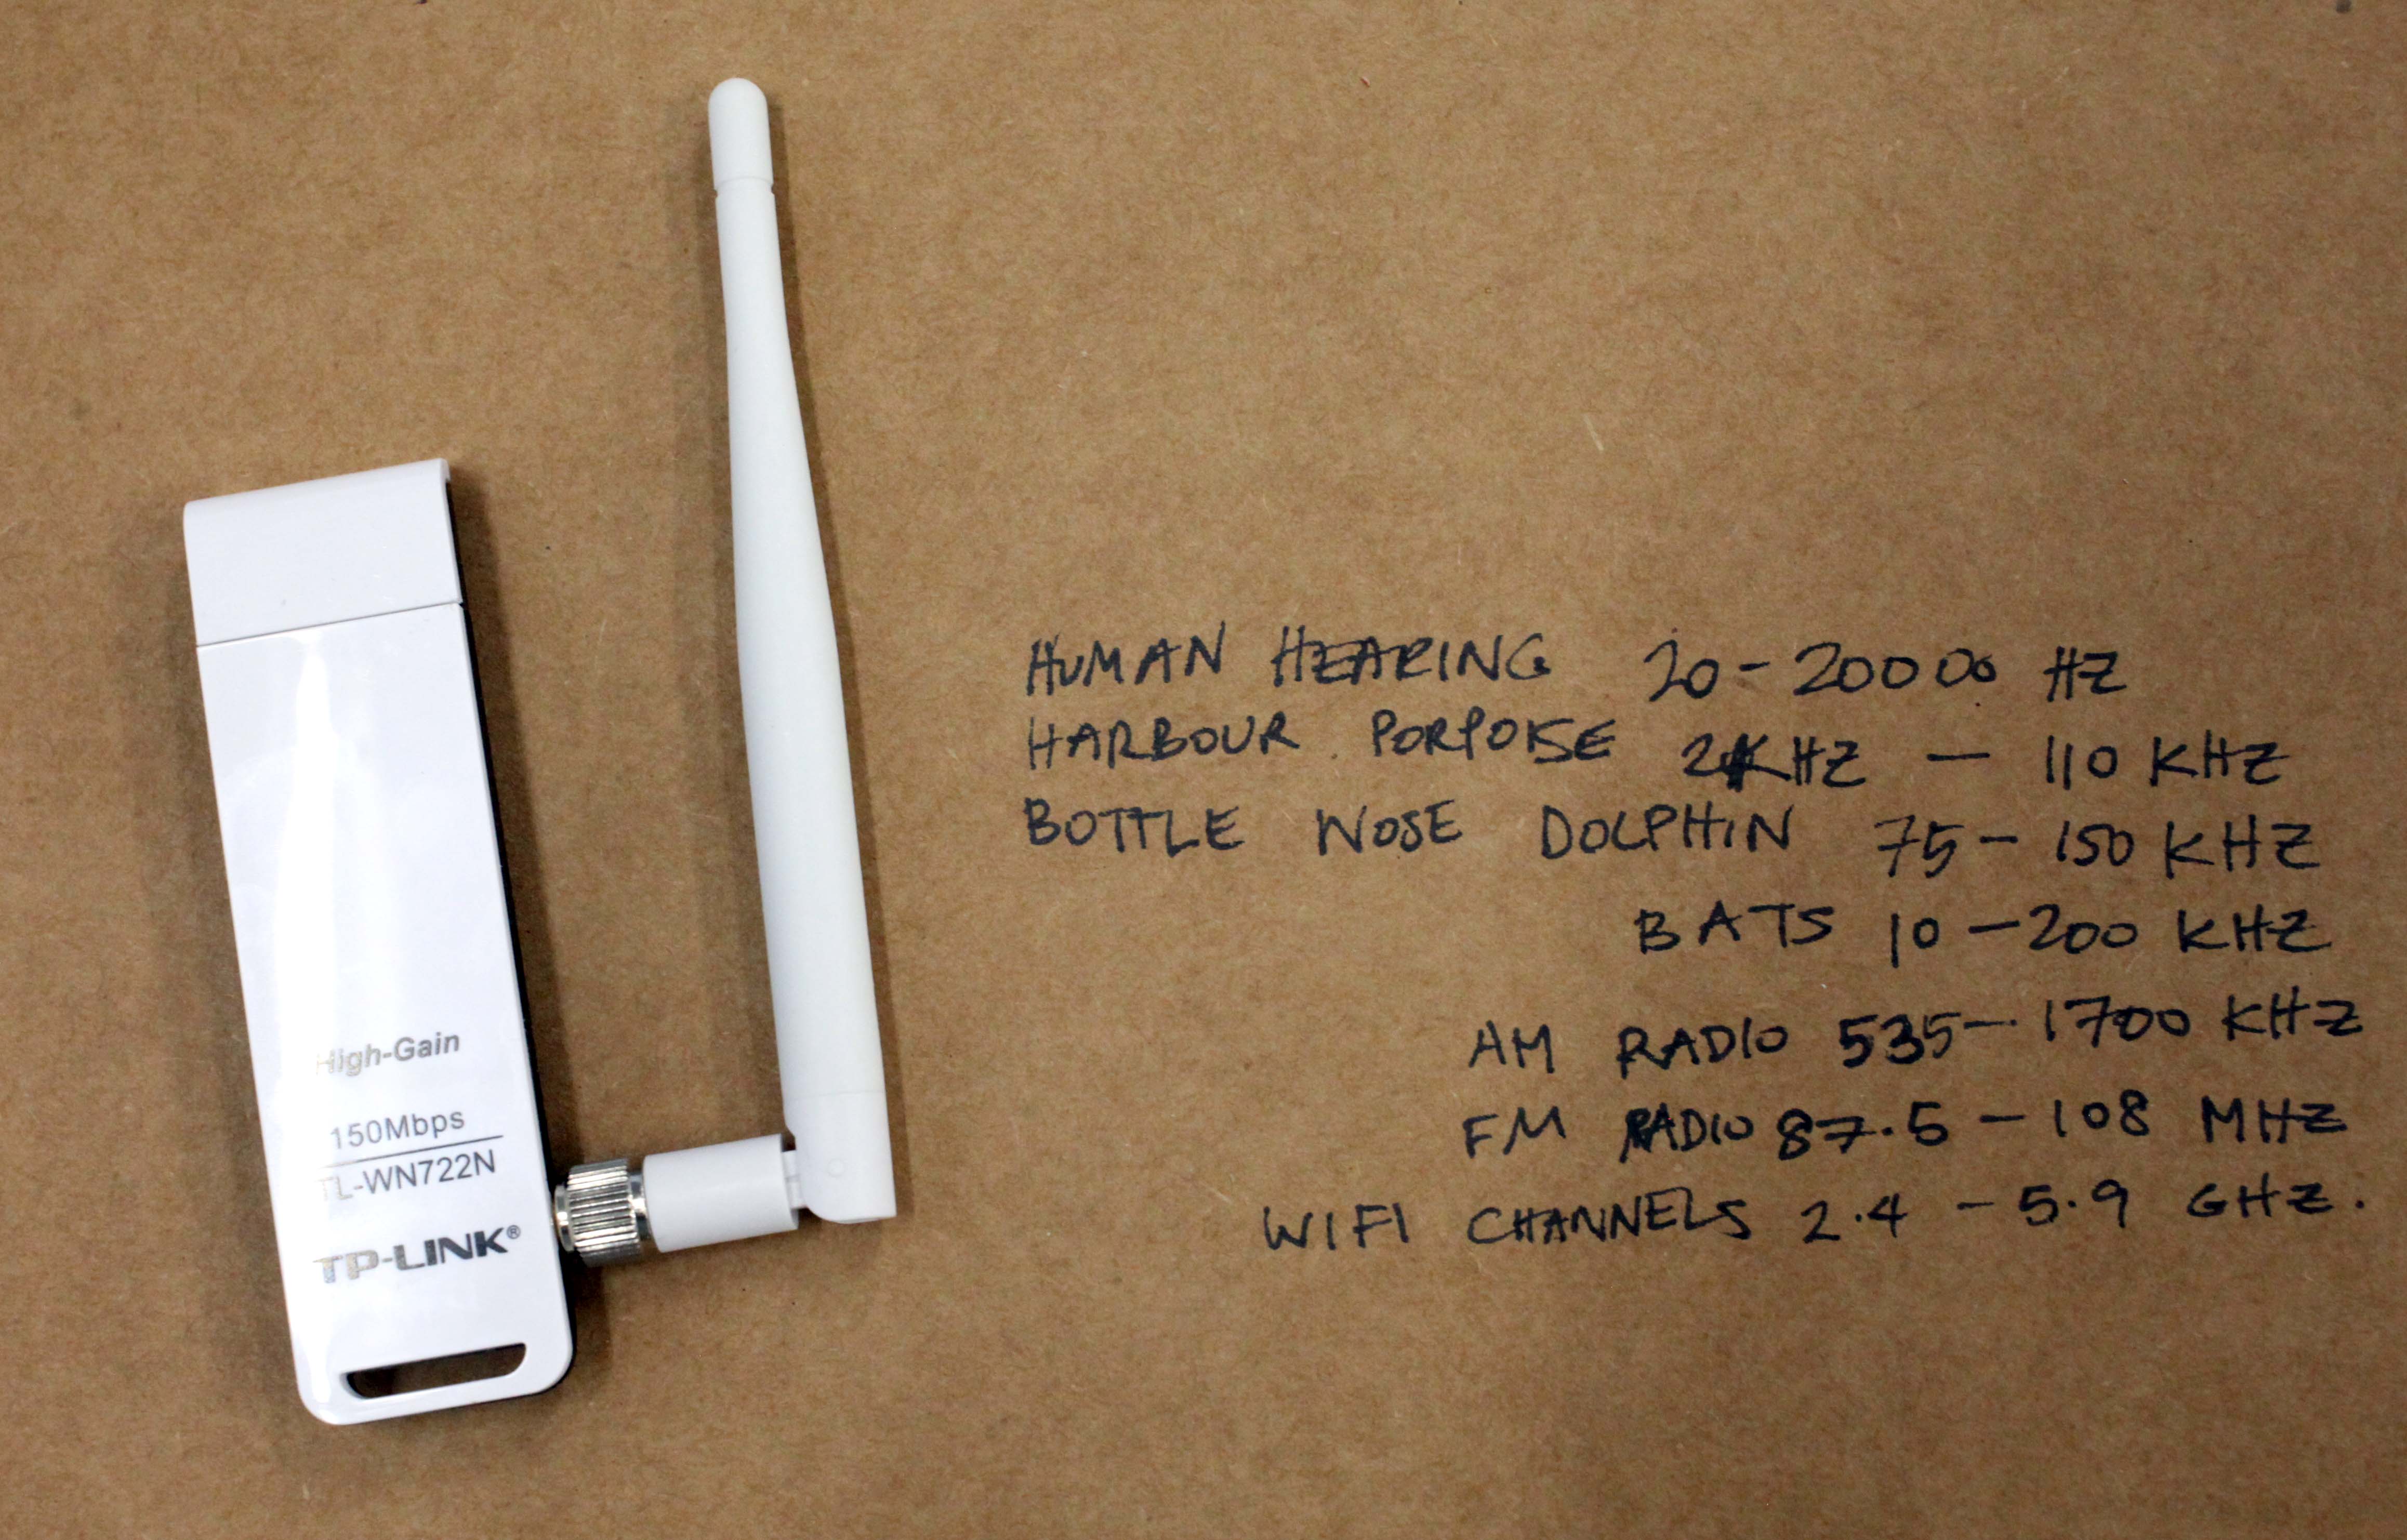 High-Gain
150Mbps
TL-WN722N
TP-LINK®
HUMAN HEARING 20 - 20000 HZ
HARBOUR PORPOISE 2KHZ - 110 KHZ
BOTTLE NOSE DOLPHIN 75 - 150 KHZ
BATS 10 - 200 KHZ
AM RADIO 535 - 1700 KHZ
FM RADIO 87.5 - 108 MHZ
WIFI CHANNELS 2.4 - 5.9 GHZ.